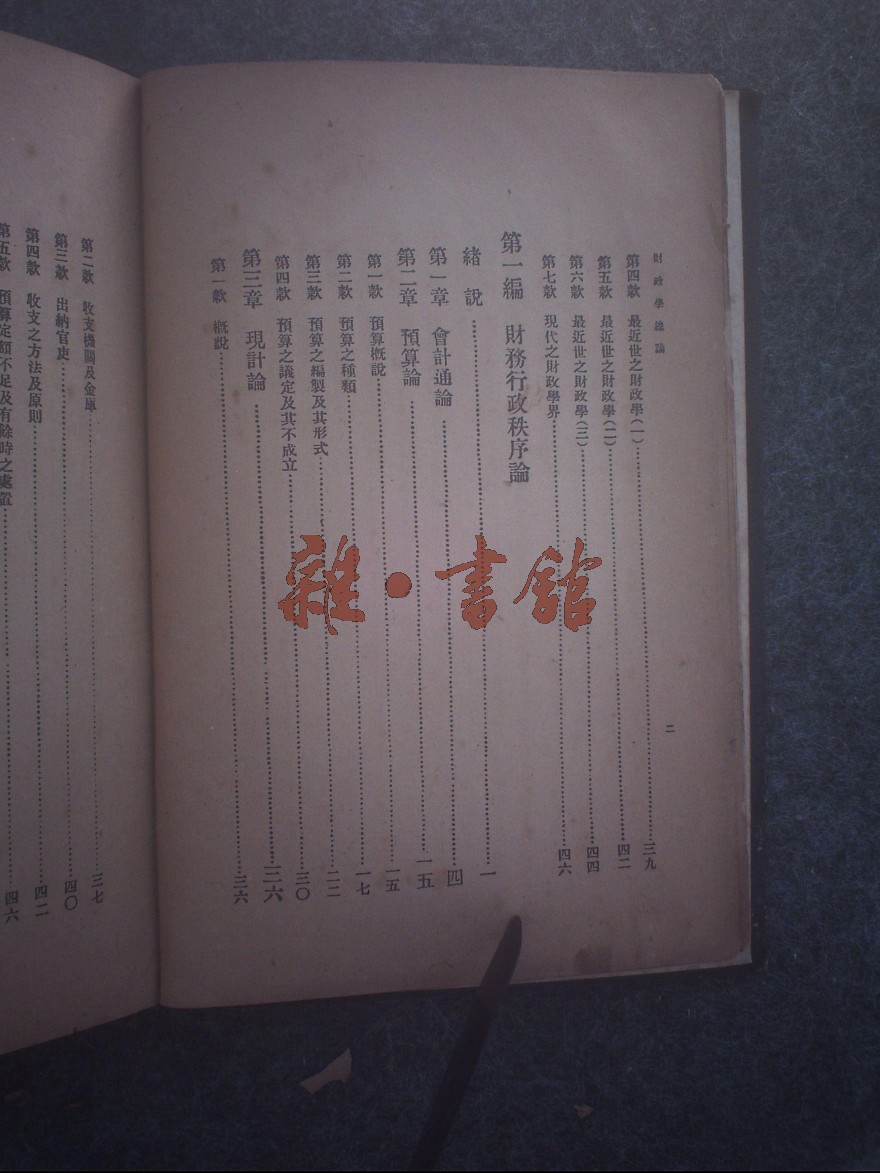 財政學總論
第四款 最近世之財政學(一)三九
第五款 最近世之財政學(二)四二
第六款 最近世之財政學(三)四四
第七款 現代之財政學界四六
第一編 財務行政秩序論
緒說一
第一章 會計通論四
第二章 預算論一五
第一款 預算概說一五
第二款 預算之種類一七
第三款 預算之編製及其形式二二
第四款 預算之議定及其不成立三〇
第三章 現計論三六
第一款 概說三六
二
第二款 收支機關及金庫三七
第三款 出納官吏四〇
第四款 收支之方法及原則四二
第五款 預算定額不足及有餘時之處置四六
雜·書館